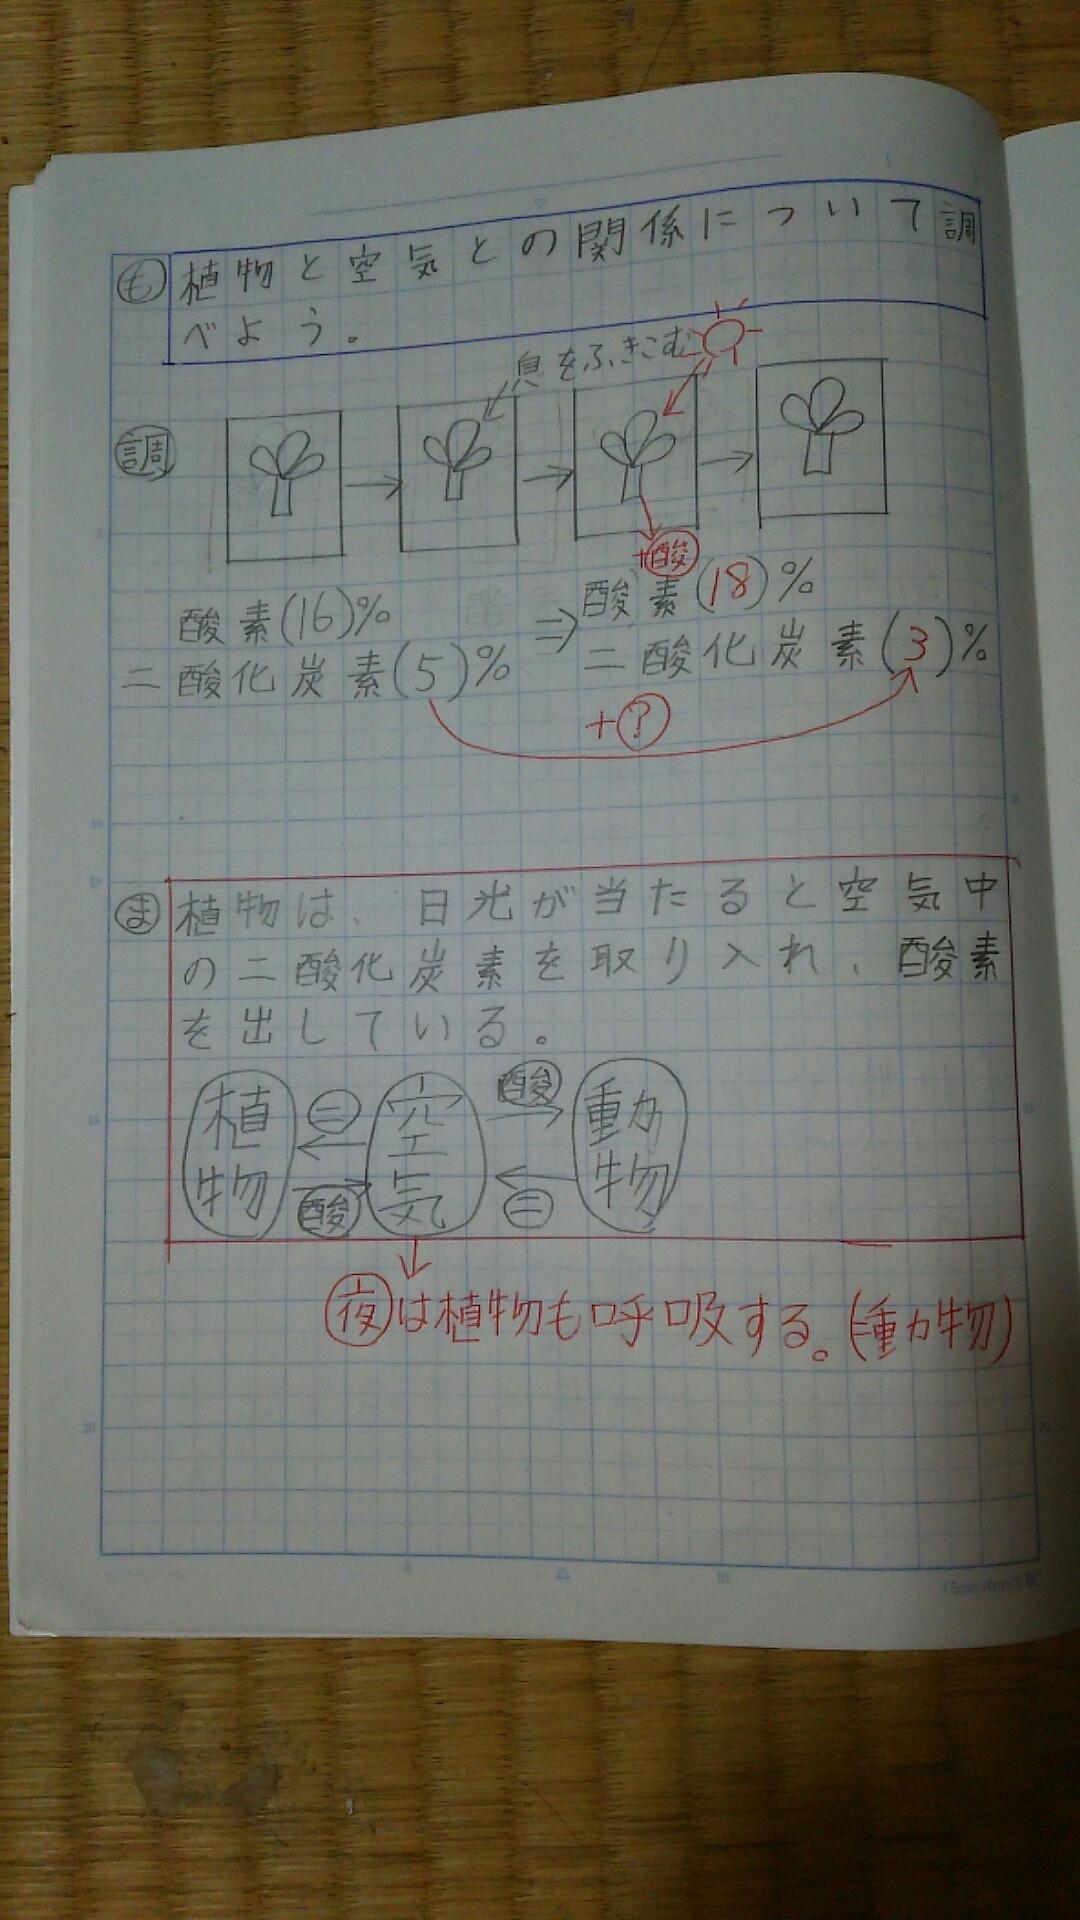 も 植物と空気との関係について調
べよう。
息をふきこむ
調
+酸
酸素(16)% ⇒ 酸素(18)%
二酸化炭素(5)% 二酸化炭素(3)%
+?
ま 植物は、日光が当たると空気中
の二酸化炭素を取り入れ、酸素
を出している。
植物 二 酸 空気 酸 二 動物
夜は植物も呼吸する。(=動物)